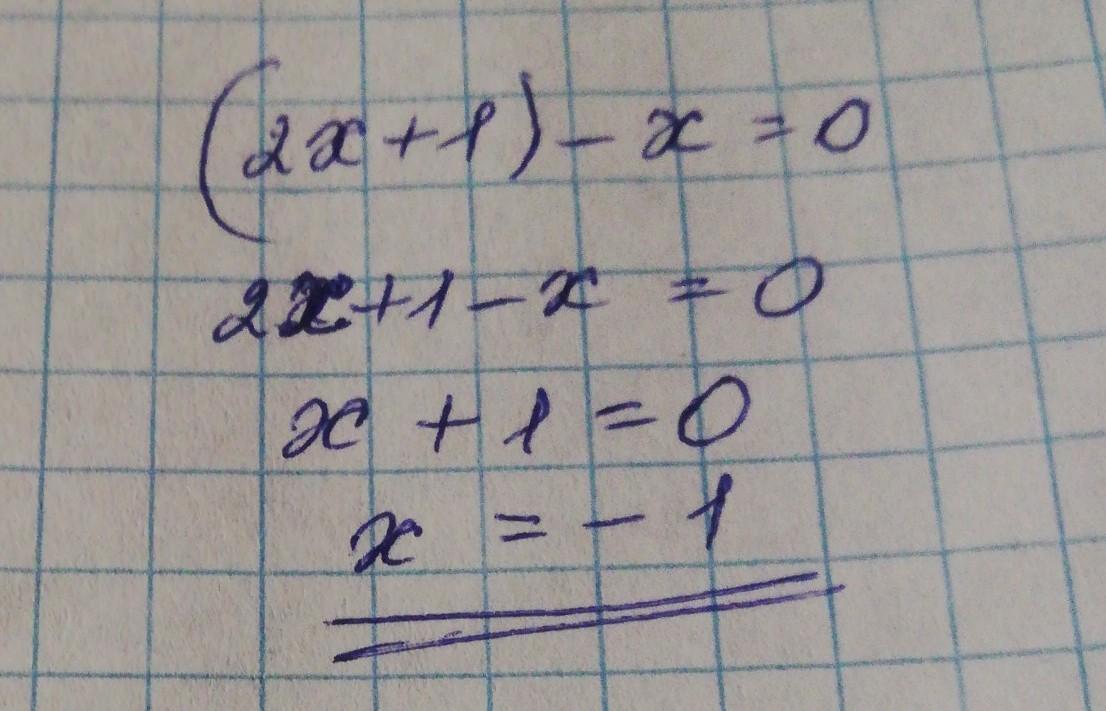 (2x+1)-x=0
2x+1-x=0
x+1=0
x=-1